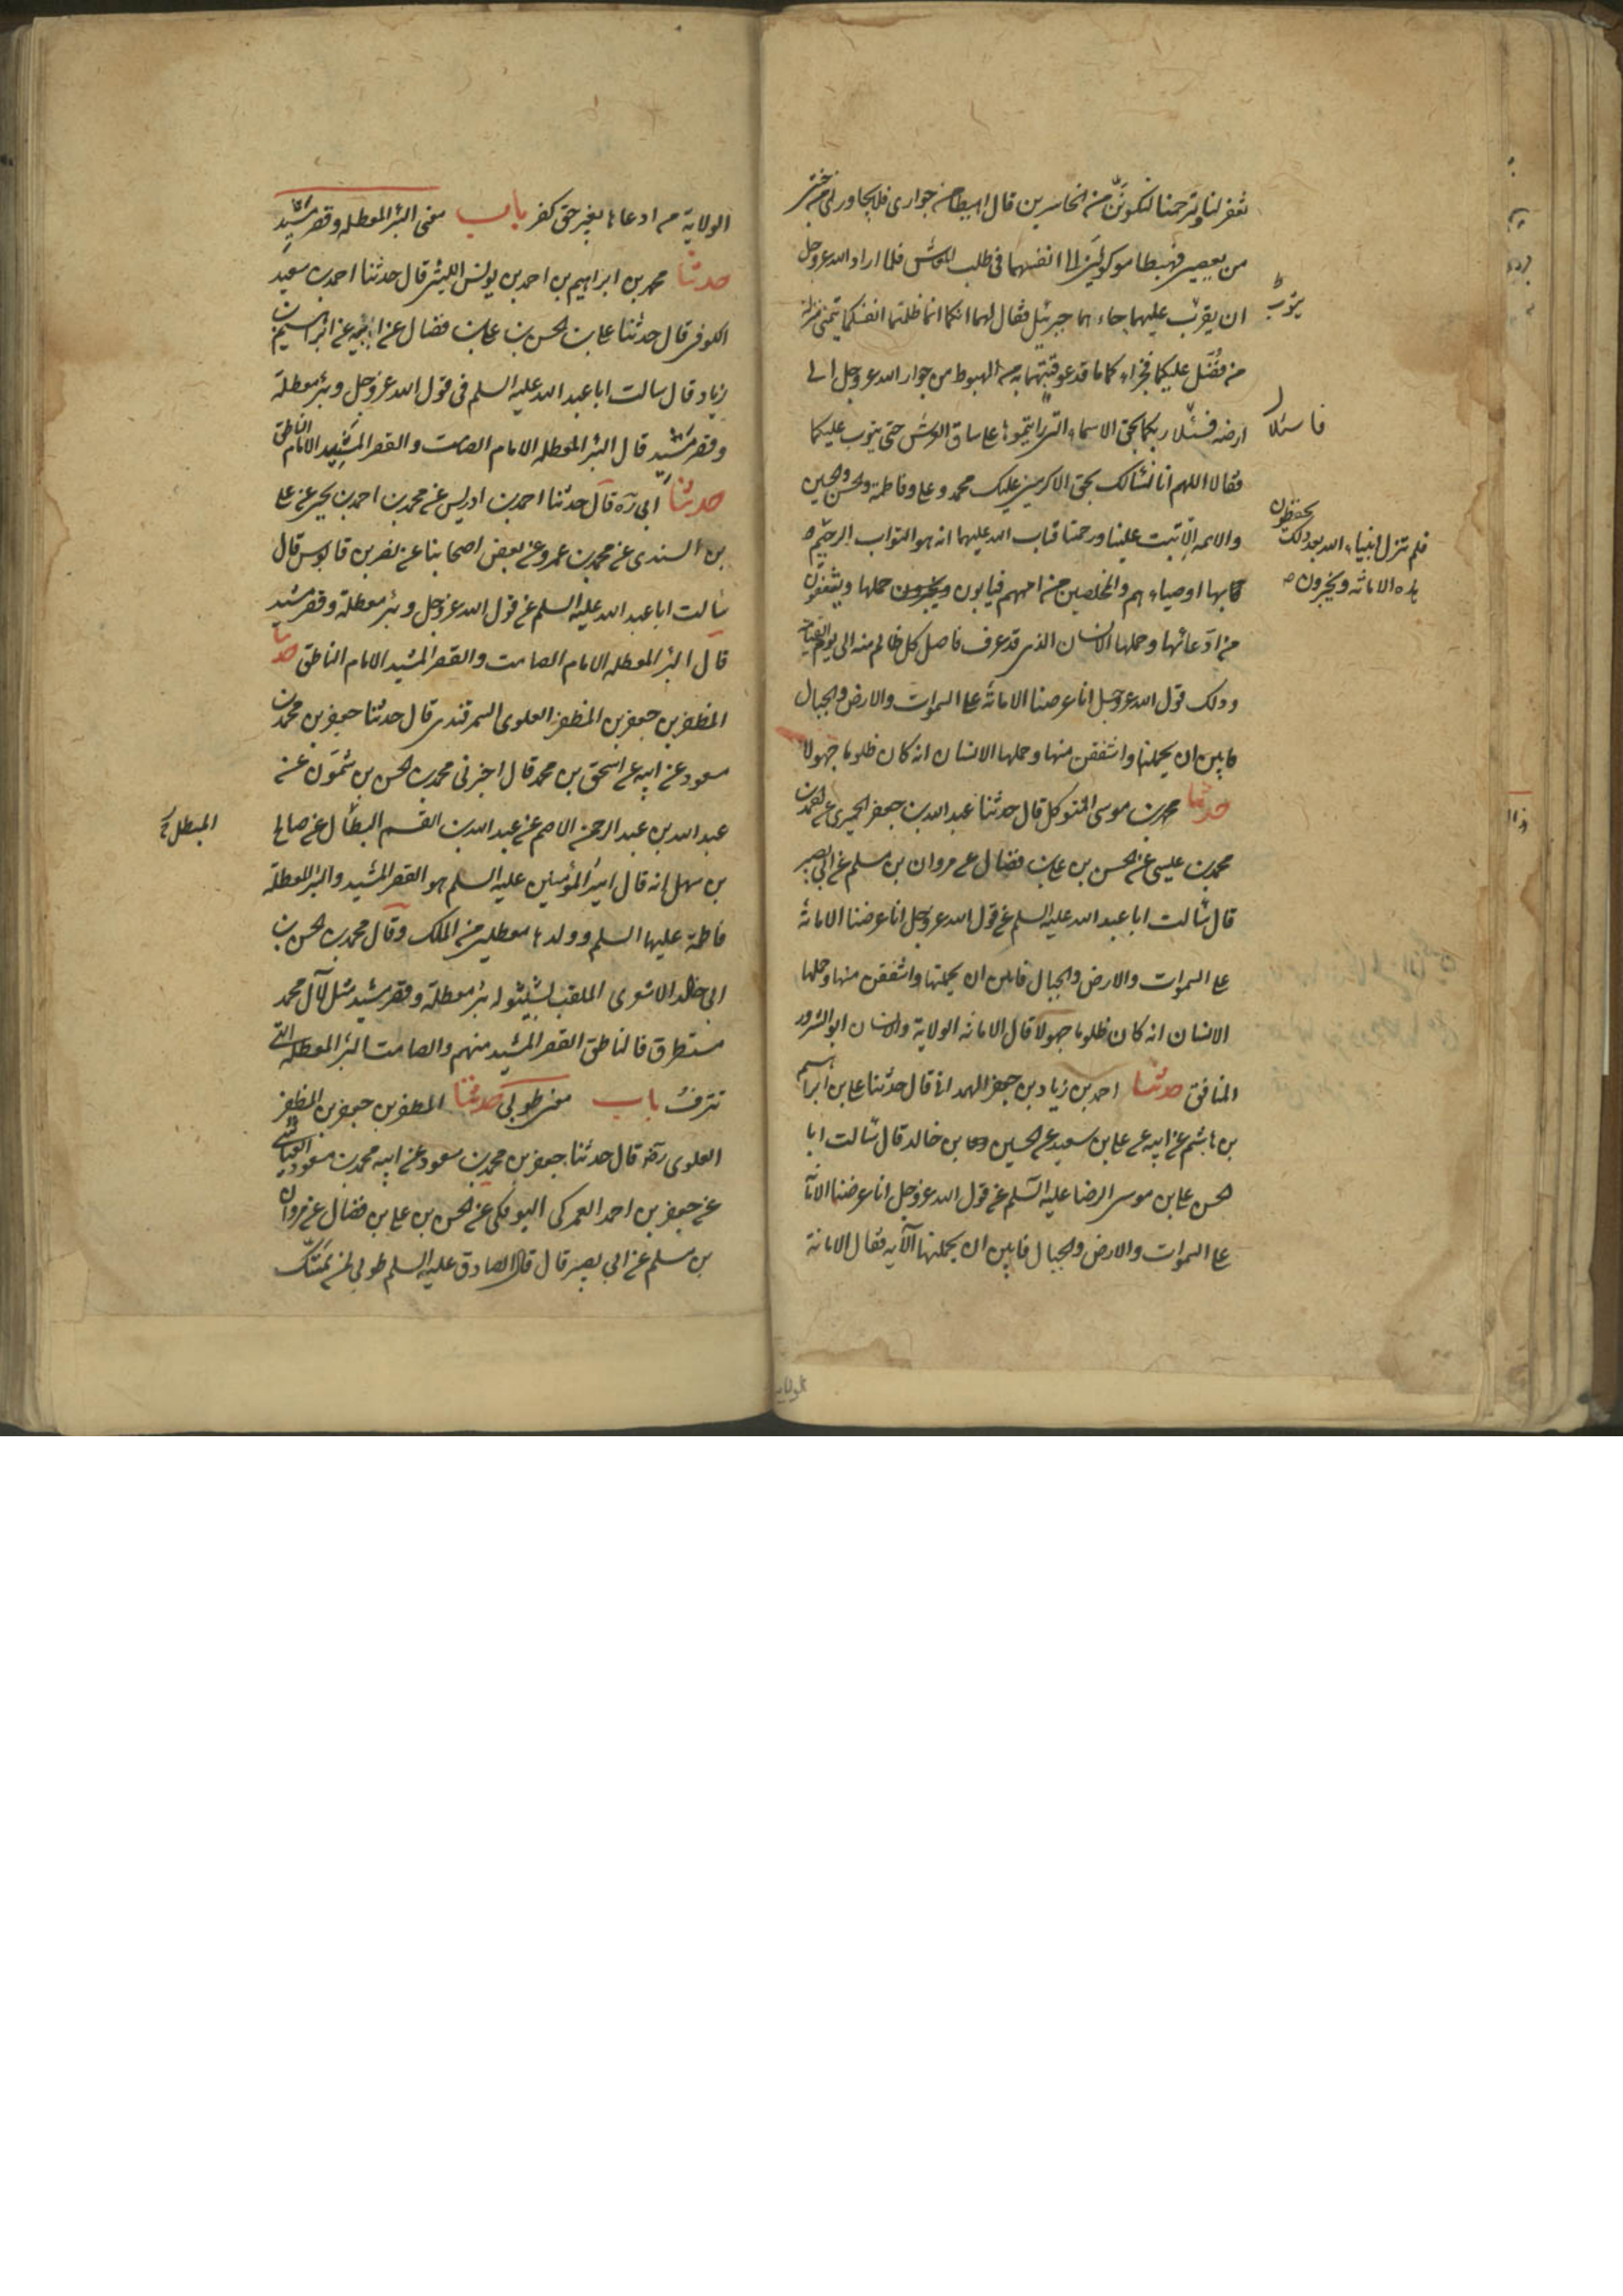 تغفر لنا وترحمنا لنكونن من الخاسرين قال اهبطا من جواري فلا يجاورني في جنتي
من يعصيني فهبطا موكولين الى انفسهما في طلب المعاش فلما اراد الله عز وجل
ان يتوب عليهما جاءهما جبرئيل فقال لهما انكما انما ظلمتما انفسكما بتمني منزلة
من فضل عليكما فجزاءكما ما قد عوقبتما به من الهبوط من جوار الله عز وجل الى
ارضه فسئلا ربكما بحق الاسماء التي رايتموها على ساق العرش حتى يتوب عليكما
فقالا اللهم انا نسئلك بحق الاكرمين عليك محمد وعلي وفاطمة والحسن والحسين
والائمه الا تبت علينا ورحمتنا فتاب الله عليهما انه هو التواب الرحيم
بها اوصياءهم والمخلصين من اممهم فيابون حملها ويشفقون
من ادعائها وحملها الانسان الذي قد عرف فاصل كل ظالم منه الى يوم القيامة
وذلك قول الله عز وجل انا عرضنا الامانة على السموات والارض والجبال
فابين ان يحملنها واشفقن منها وحملها الانسان انه كان ظلوما جهولا
حدثنا محمد بن موسى المتوكل قال حدثنا عبد الله بن جعفر الحميري عن احمد بن
محمد بن عيسى عن الحسن بن علي بن فضال عن مروان بن مسلم عن ابي بصير
قال سالت ابا عبد الله عليه السلم عن قول الله عز وجل انا عرضنا الامانة
على السموات والارض والجبال فابين ان يحملنها واشفقن منها وحملها
الانسان انه كان ظلوما جهولا قال الامانه الولاية والانسان ابو الشرور
المنافق حدثنا احمد بن زياد بن جعفر الهمداني قال حدثنا علي بن ابراهيم
بن هاشم عن ابيه عن علي بن سعيد عن الحسين بن خالد قال سالت ابا
الحسن علي بن موسى الرضا عليه السلم عن قول الله عز وجل انا عرضنا الامانة
على السموات والارض والجبال فابين ان يحملنها الآيه فقال الامانة
يتوب
فاسئلا
فلم تزل انبياء الله بعد ذلك يحفظون
هذه الامانه ويخبرون
الولاية من ادعاها بغير حق كفر باب معنى البئر المعطله وقصر مشيد
حدثنا محمد بن ابراهيم بن احمد بن يونس الليثي قال حدثنا احمد بن سعيد
الكوفي قال حدثنا علي بن الحسن بن علي بن فضال عن ابيه عن ابراهيم بن
زياد قال سالت ابا عبد الله عليه السلم في قول الله عز وجل وبئر معطلة
وقصر مشيد قال البئر المعطله الامام الصامت والقصر المشيد الامام الناطق
حدثنا ابي ره قال حدثنا احمد بن ادريس عن محمد بن احمد بن يحيى عن علي
بن السندي عن محمد بن عمرو عن بعض اصحابنا عن نصر بن قابوس قال
سالت ابا عبد الله عليه السلم عن قول الله عز وجل وبئر معطلة وقصر مشيد
قال البئر المعطله الامام الصامت والقصر المشيد الامام الناطق حدثنا
المظفر بن جعفر بن المظفر العلوي السمرقندي قال حدثنا جعفر بن محمد بن
مسعود عن ابيه عن اسحق بن محمد قال اخبرني محمد بن الحسن بن شمون عن
عبد الله بن عبد الرحمن الاصم عن عبد الله بن القسم البطال عن صالح
بن سهل انه قال امير المؤمنين عليه السلم هو القصر المشيد والبئر المعطلة
فاطمة عليها السلم وولدها معطلين من الملك وقال محمد بن الحسن بن
ابي خالد الاشعري الملقب بشنبوله بئر معطلة وقصر مشيد مثل لآل محمد
مستطرق فالناطق القصر المشيد منهم والصامت البئر المعطله التي
تنزف باب معنى طوبى حدثنا المظفر بن جعفر بن المظفر
العلوي رضه قال حدثنا جعفر بن محمد بن مسعود عن ابيه محمد بن مسعود العياشي
عن جعفر بن احمد العمركي البوفكي عن الحسن بن علي بن فضال عن مروان
بن مسلم عن ابي بصير قال قال الصادق عليه السلم طوبى لمن تمسك
المبطل